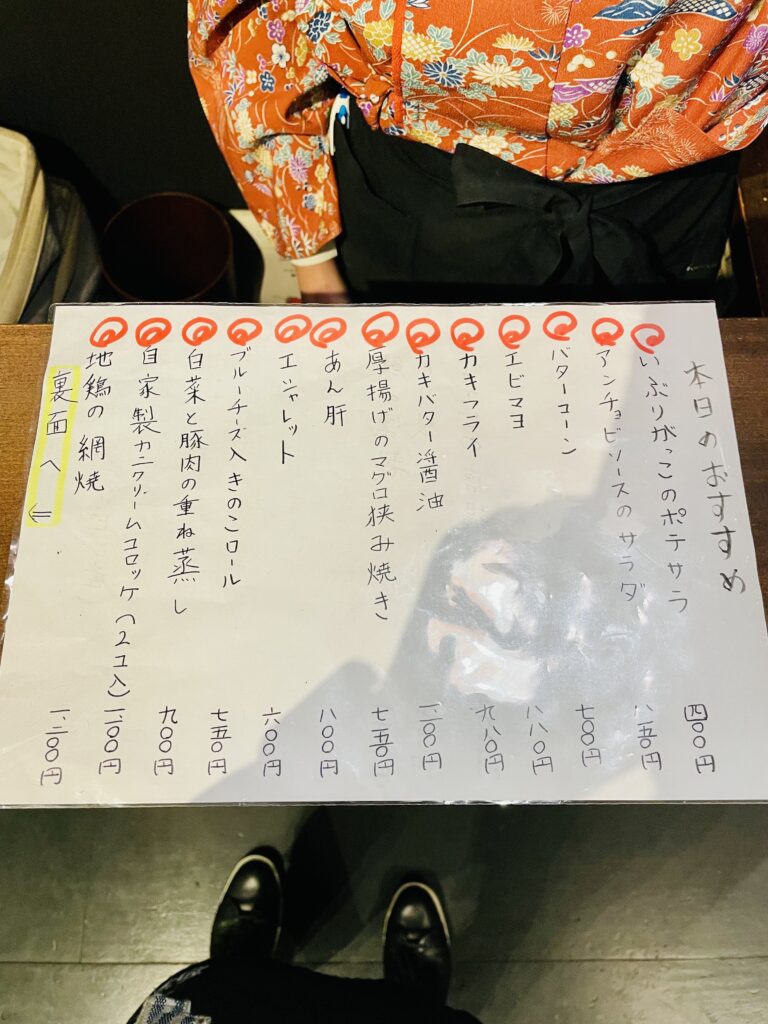 本日のおすすめ
いぶりがっこのポテサラ 四〇〇円
アンチョビソースのサラダ 八五〇円
バターコーン 七〇〇円
エビマヨ 八八〇円
カキフライ 九八〇円
カキバター醤油
厚揚げのマグロ狭み焼き 七五〇円
あん肝 八〇〇円
エシャレット 六〇〇円
ブルーチーズ入きのこロール 七五〇円
白菜と豚肉の重ね蒸し 九〇〇円
自家製カニクリームコロッケ(2コ入) 一、一〇〇円
地鶏の網焼 一、二〇〇円
裏面へ⇐